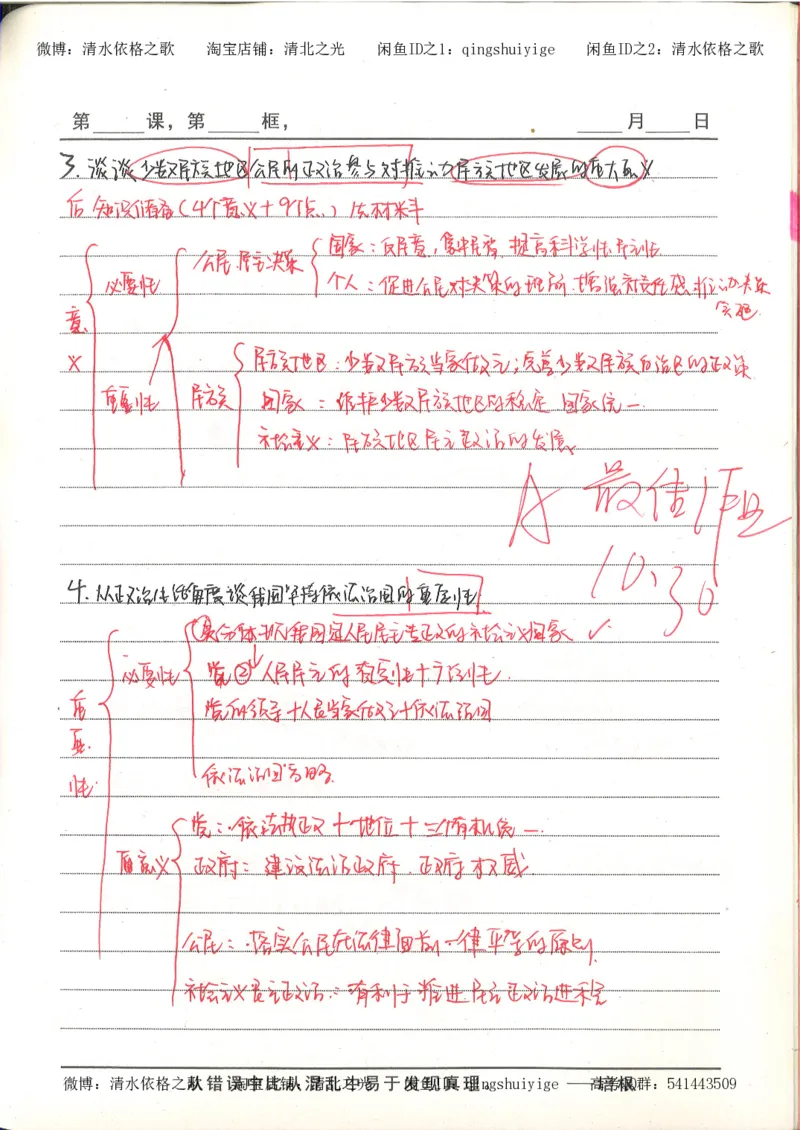 微博：清水依格之歌 淘宝店铺：清北之光 闲鱼ID之1：qingshuiyige 闲鱼ID之2：清水依格之歌
第 课，第 框， 月 日
3. 谈谈少数民族地区公民的政治参与对推动民族地区发展的重大意义
后知识储备（4个意义+9个点）依材料
意义
必要性
公民民主决策
国家：反民意，集民智，提高科学性民主性
个人：促进公民对决策的理解，增强责任感，推动决策
实施
重要性
民族
民族地区：少数民族当家做主；完善少数民族自治区的政策
国家：维护少数民族地区的稳定 国家统一
社会主义：民族地区民主政治的发展
A 最佳作业
10.30
4. 从政治生活角度谈我国坚持依法治国的重要性
重要性
必要性
①充分体现我国是人民民主专政的社会主义国家 ✓
党② 人民民主的真实性+广泛性
党的领导+人民当家做主+依法治国
依法治国方略
重意义
党：依法执政+地位+三个有机统一
政府：建设法治政府，政府权威
公民：落实公民在法律面前一律平等的原则
社会主义民主政治：有利于推进民主政治进程
微博：清水依格之歌 淘宝店铺：清北之光 闲鱼ID：qingshuiyige 高考QQ群：541443509
从错误中比从混乱中易于发现真理。——培根